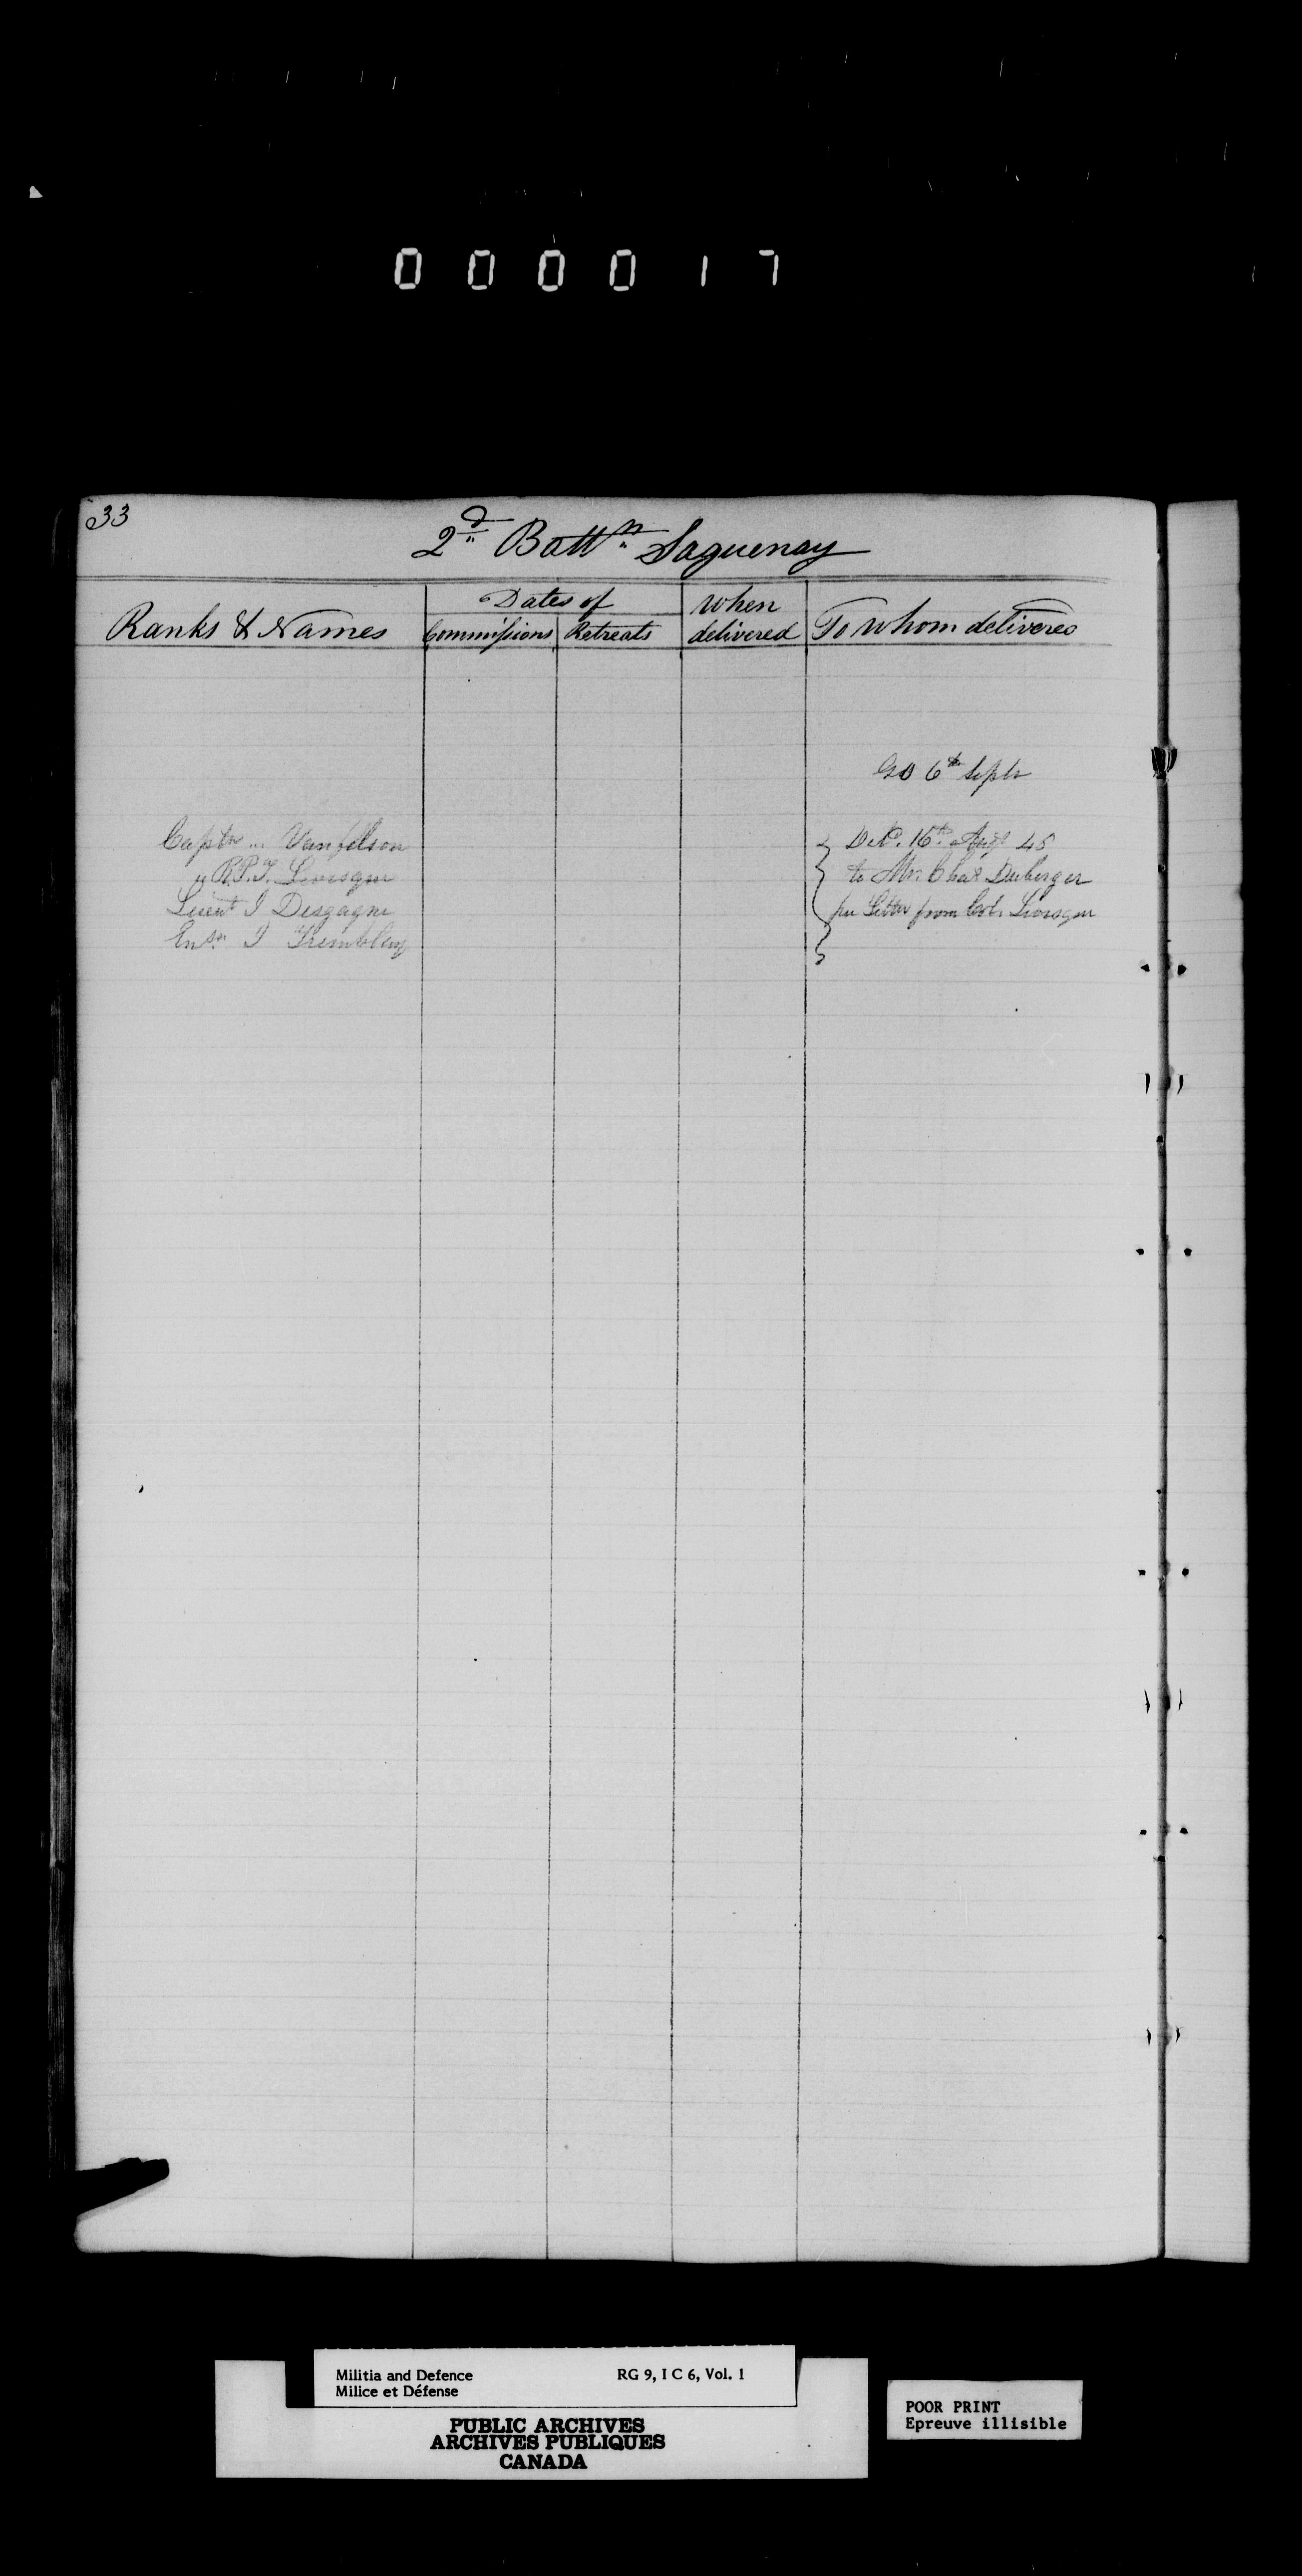 000017
33
2d Battn Saguenay
Ranks & Names
Dates of
Commissions
Retreats
When delivered
To whom delivered
GO 6th Septr
Captn ... Vanfelson
" R.P.T. Levesque
Lieut I Desgagne
Ensn I Tremblay
Deld. 16th Augt 45
to Mr. Chas Duberger
per Letter from Col. Levesque
Militia and Defence
Milice et Défense
RG 9, I C 6, Vol. 1
PUBLIC ARCHIVES
ARCHIVES PUBLIQUES
CANADA
POOR PRINT
Epreuve illisible